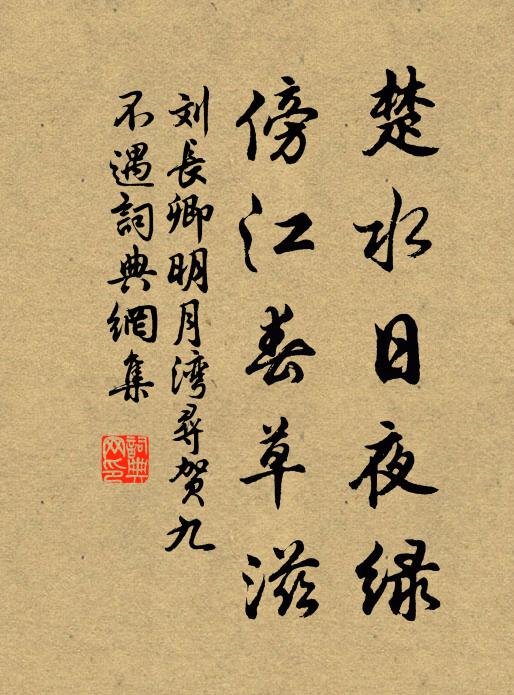 楚水日夜绿
傍江春草滋
刘長卿明月湾尋贺九
不遇詞典網集
詞典
网印